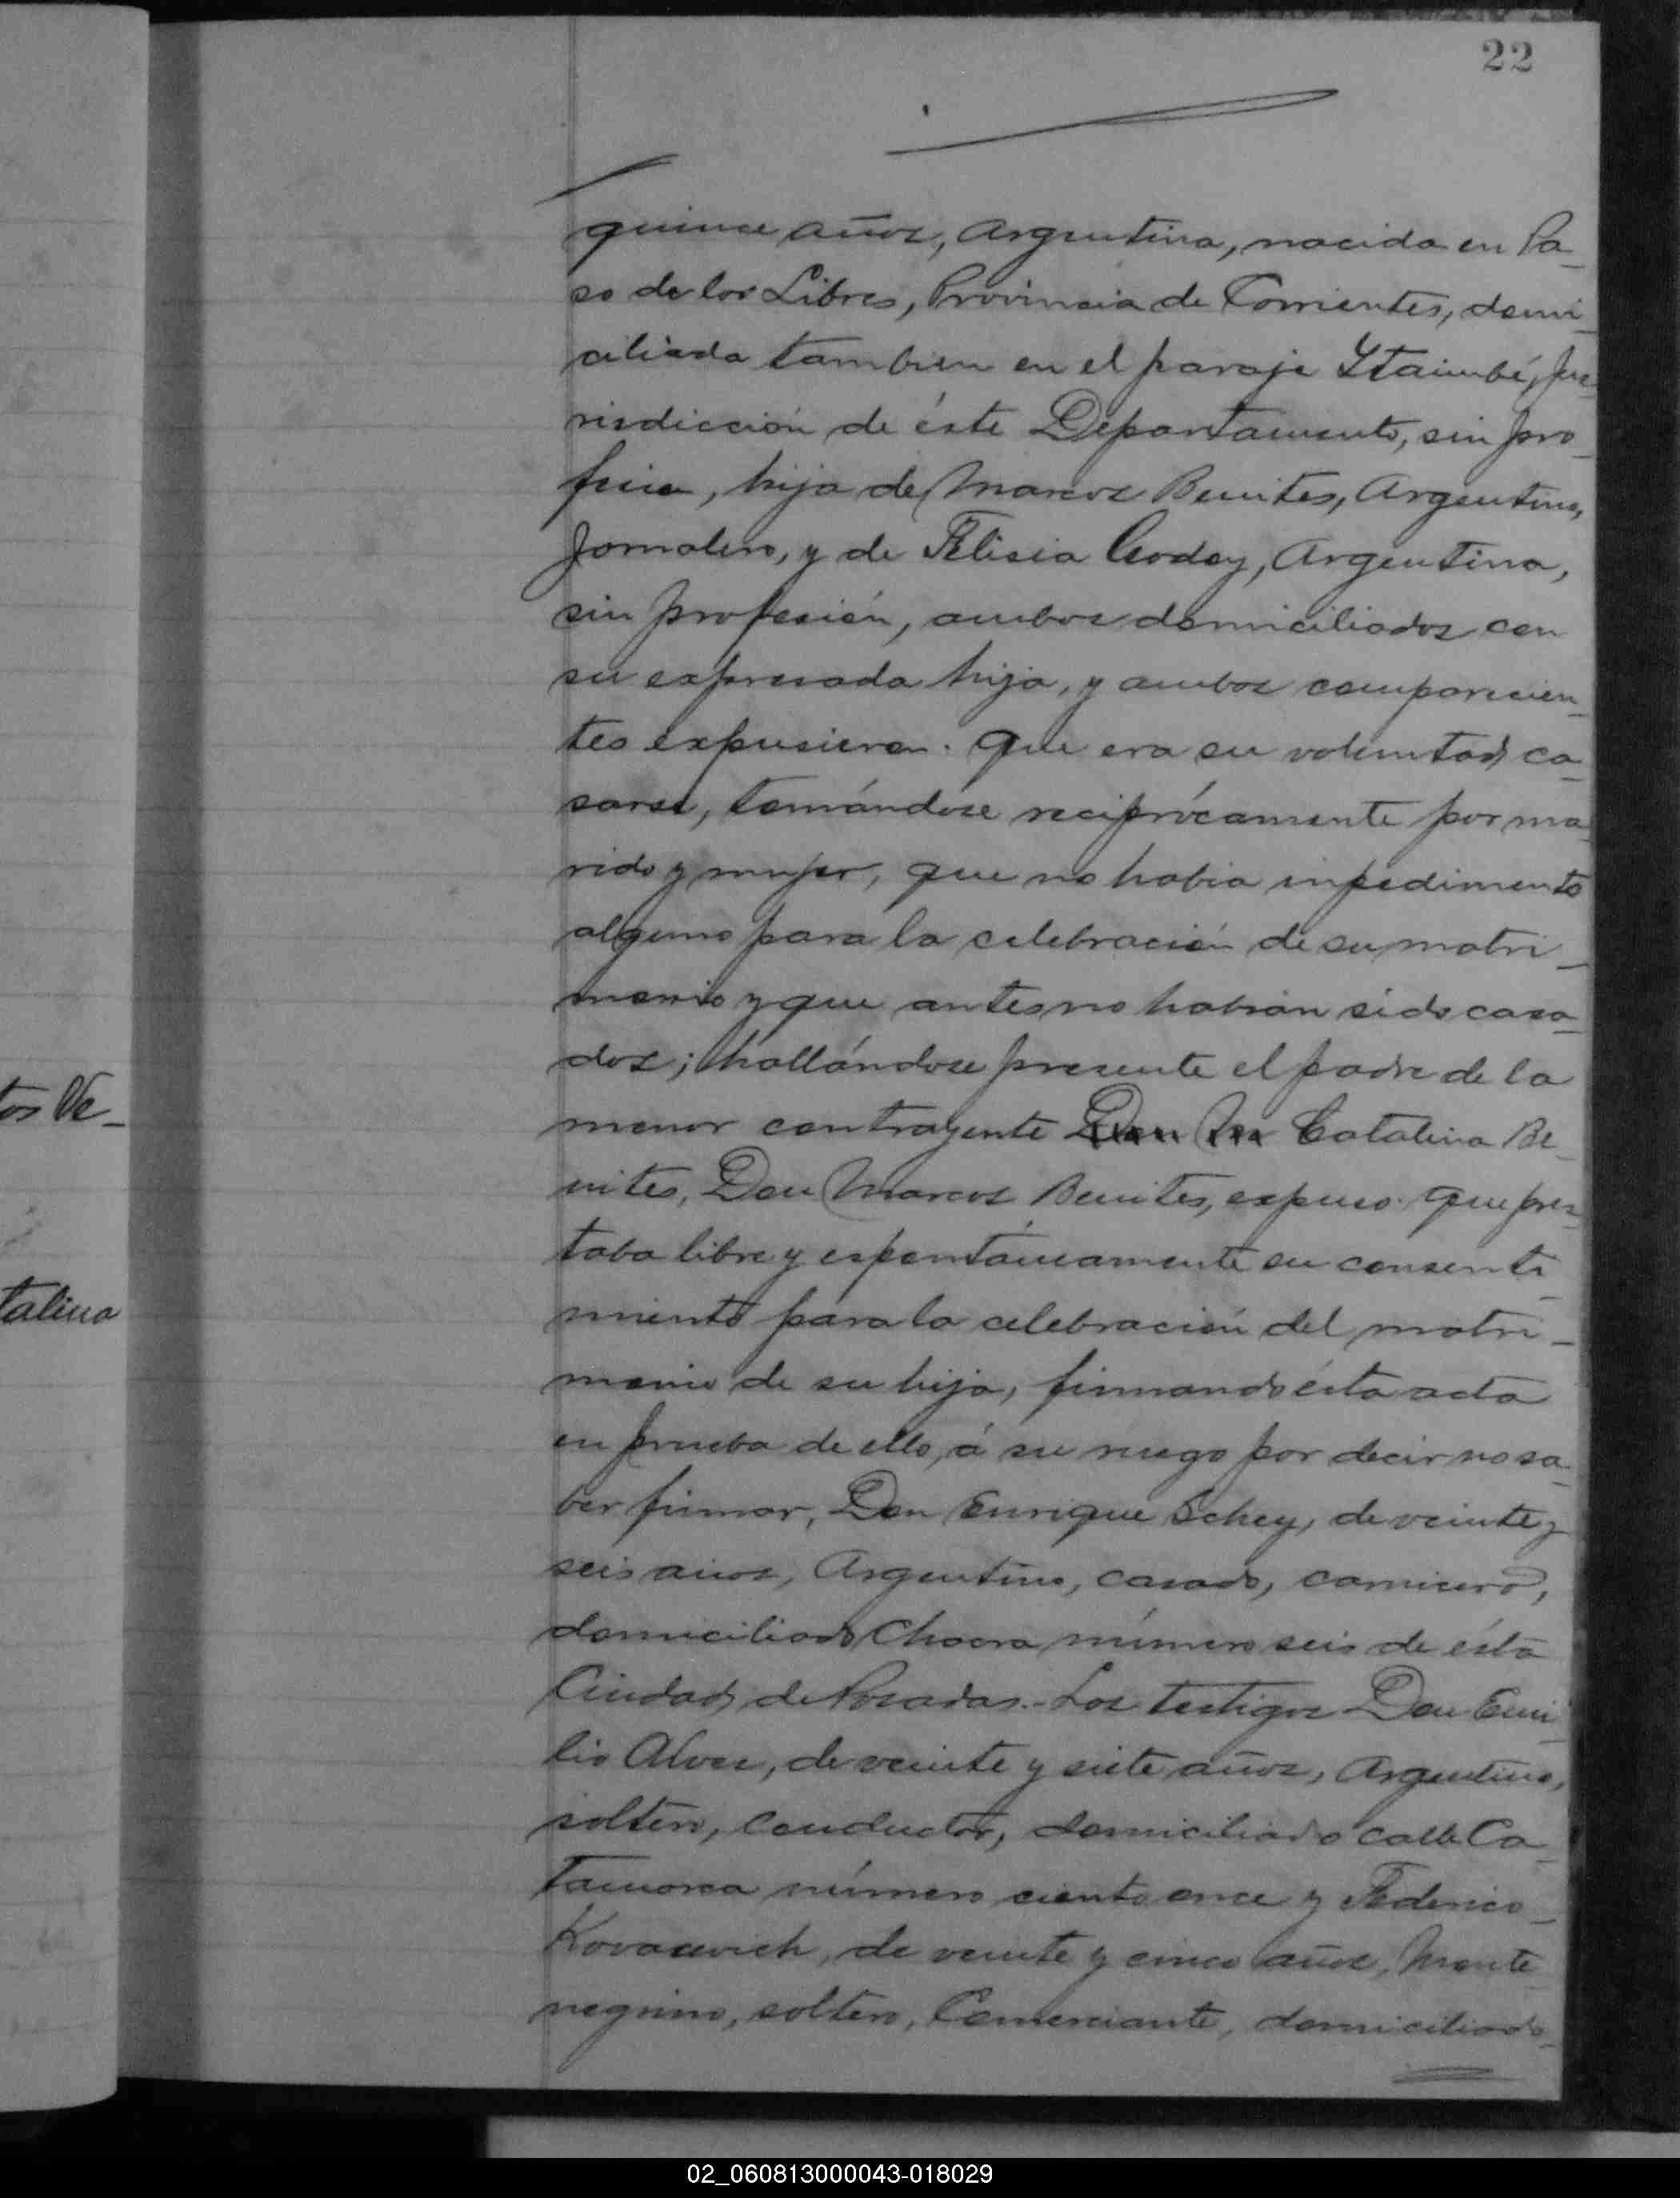 22
quince años, Argentina, nacida en Pa_
so de los Libres, Provincia de Corrientes, domi_
ciliada tambien en el paraje Ytaimbé, Ju_
risdicción de éste Departamento, sin pro_
fesion, hija de Marcos Benites, Argentino,
Jornalero, y de Felisia Godoy, Argentina,
sin profesión, ambos domiciliados con
su expresada hija, y ambos comparecien_
tes expusieron: que era su voluntad ca_
sarse, tomándose reciprócamente por ma_
rido y mujer, que no habia impedimento
alguno para la celebración de su matri_
monio y que antes no habian sido casa_
dos; hallándose presente el padre de la
menor contrayente Don M Catalina Be_
nites, Don Marcos Benites, expuso: que pres_
taba libre y espontáneamente su consenti_
miento para la celebración del matri_
monio de su hija, firmando ésta acta
en prueba de ello, á su ruego por decir no sa_
ber firmar, Don Enrique Schey, de veinte y
seis años, Argentino, casado, carnicero,
domiciliado Chacra número seis de ésta
Ciudad de Posadas.- Los testigos Don Emi_
lio Alvez, de veinte y siete años, Argentino,
soltero, conductor, domiciliado calle Ca_
tamarca número ciento once y Federico_
Kovacevich, de veinte y cinco años, Monte_
negrino, soltero, Comerciante, domiciliado_
tos Ve_
talina
02_060813000043-018029